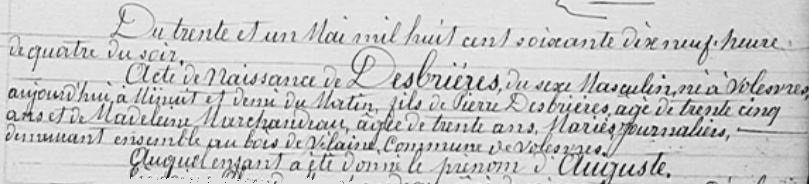 Du trente et un Mai mil huit cent soixante dix neuf. heure
de quatre du soir.
Acte de Naissance de Desbriéres, du sexe Masculin, né à Volesvres,
aujourd'hui, à Minuit et demi du Matin, fils de Pierre Desbrières, agé de trente cinq
ans et de Madeleine Marchandeau, âgée de trente ans, Mariés, Journaliers,
demeurant ensemble au bois de Vilaine, Commune de Volesvres.
Auquel enfant a été donné le prénom d'Auguste.